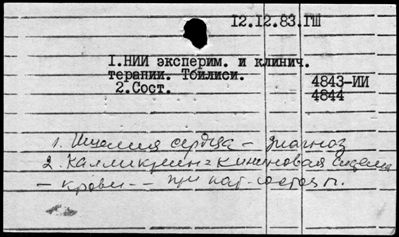 12.12.83.ГШ
1.НИИ эксперим. и клинич.
терапии. Тбилиси.
2.Сост.
4843-ИИ
4844
1. Ишемия сердца - диагноз
2. Калликреин=кининовая система
- крови -- при пат. состоян.